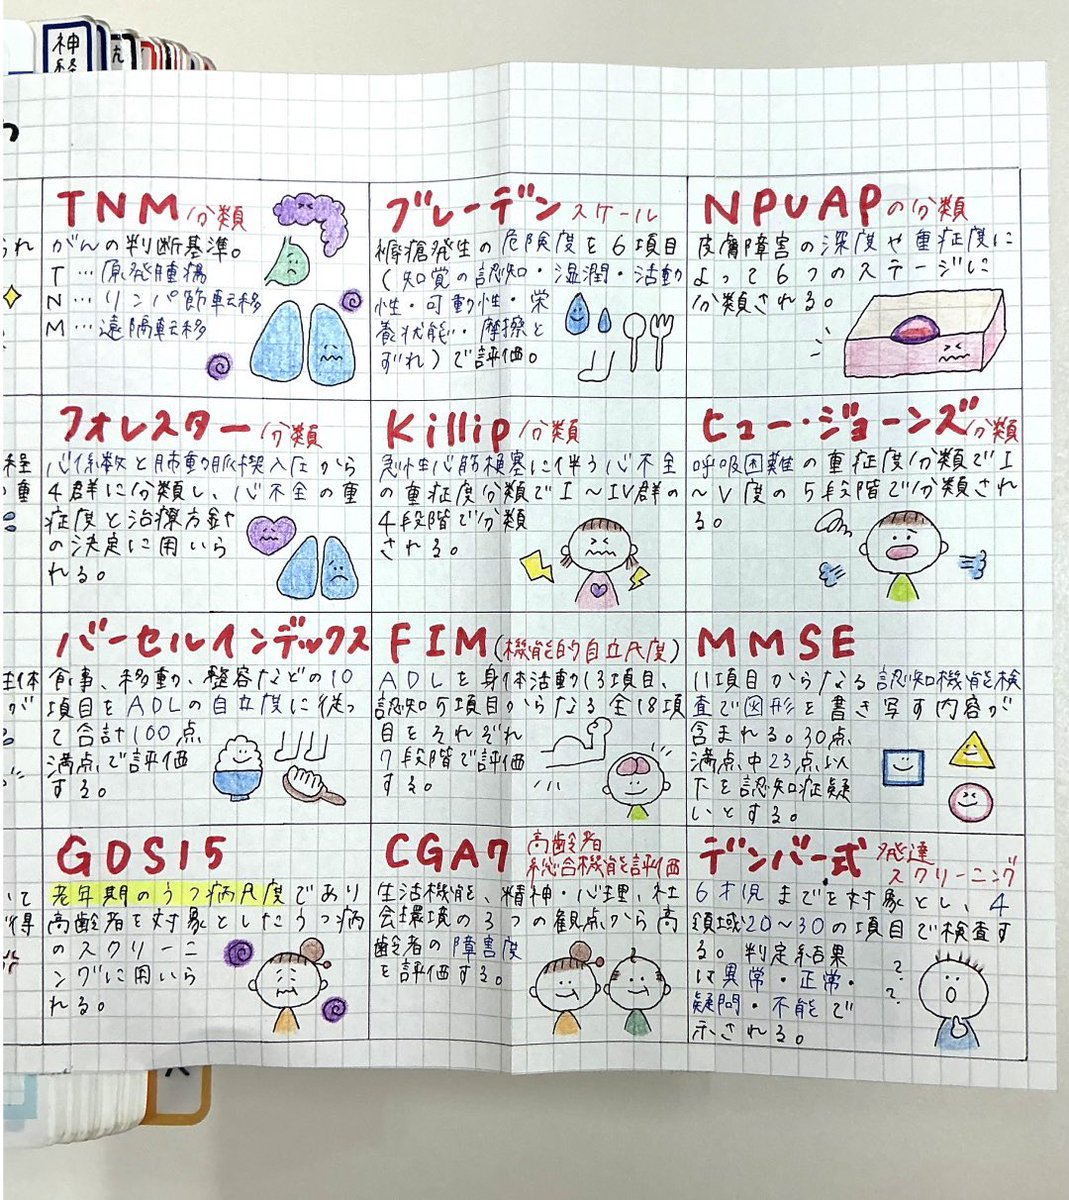 神
経
TNM分類
がんの判断基準。
T…原発腫瘍
N…リンパ節転移
M…遠隔転移
ブレーデンスケール
褥瘡発生の危険度を6項目
(知覚の認知・湿潤・活動
性・可動性・栄
養状態・摩擦と
ずれ)で評価。
NPUAPの分類
皮膚障害の深度や重症度に
よって6つのステージに
分類される。
フォレスター分類
心係数と肺動脈楔入圧から
4群に分類し、心不全の重
症度と治療方針
の決定に用いら
れる。
Killip分類
急性心筋梗塞に伴う心不全
の重症度分類でI〜IV群の
4段階で分類
される。
ヒュー・ジョーンズ分類
呼吸困難の重症度分類でI
〜V度の5段階で分類され
る。
バーセルインデックス
食事、移動、整容などの10
項目をADLの自立度に従っ
て合計100点
満点で評価
する。
FIM(機能的自立尺度)
ADLを身体活動13項目、
認知5項目からなる全18項
目をそれぞれ
7段階で評価
する。
MMSE
11項目からなる認知機能検
査で図形を書き写す内容が
含まれる。30点
満点中23点以
下を認知症疑
いとする。
GDS15
老年期のうつ病尺度であり
高齢者を対象としたうつ病
のスクリーニ
ングに用いら
れる。
CGA7 高齢者
総合機能評価
生活機能、精神・心理、社
会環境の3つの観点から高
齢者の障害度
を評価する。
デンバー式 発達
スクリーニング
6才児までを対象とし、4
領域20〜30の項目で検査す
る。判定結果
は異常・正常・
疑問・不能で
示される。